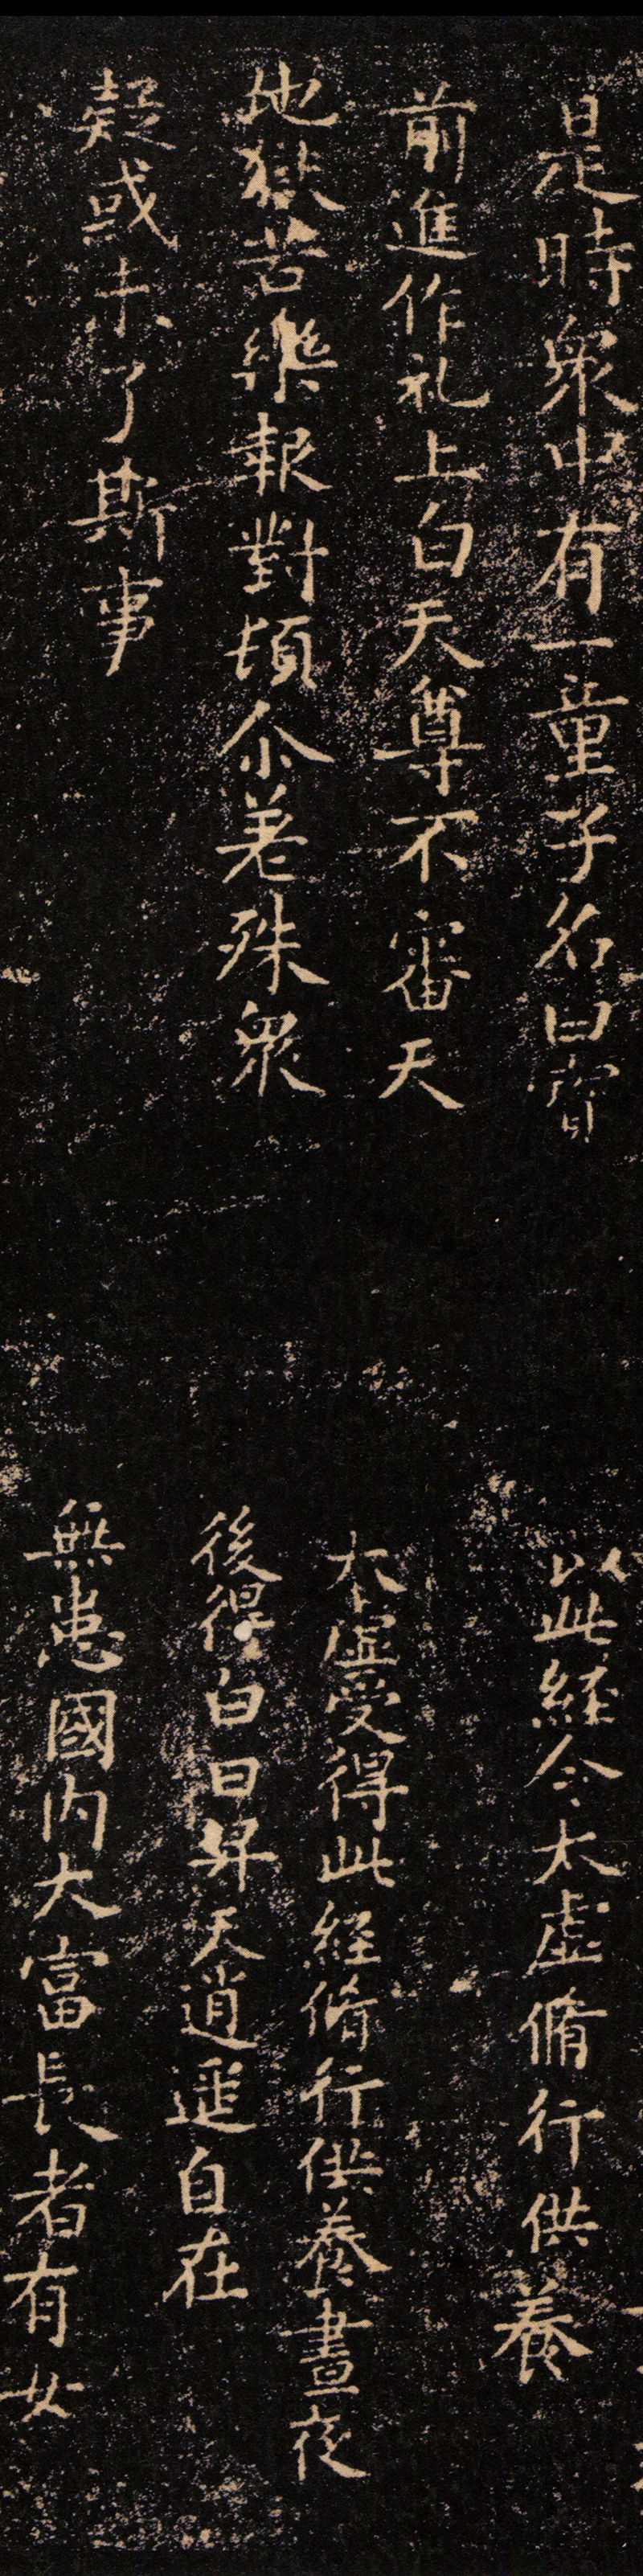 日是時衆中有一童子名曰寳
前進作礼上白天尊不審天
地獄苦樂報對頓尒差殊衆
疑或未了斯事
以此経令太虛脩行供養
太虛受得此経脩行供養晝夜
後得白日昇天逍遥自在
無患國内大富長者有女